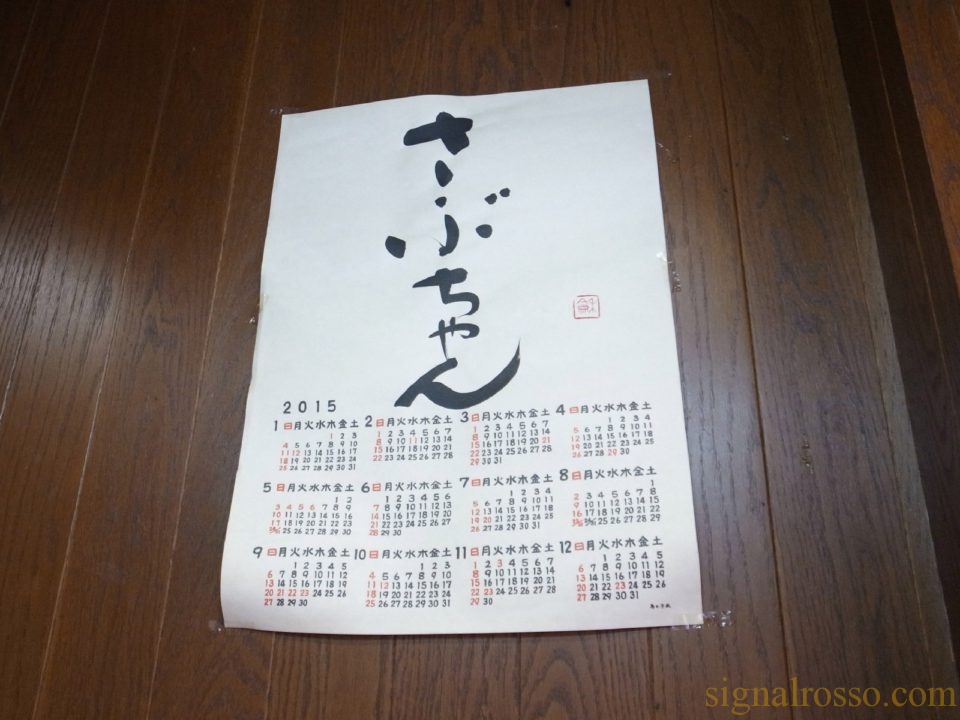 さぶちゃん
2015
1 日月火水木金土
1 2 3
4 5 6 7 8 9 10
11 12 13 14 15 16 17
18 19 20 21 22 23 24
25 26 27 28 29 30 31
2 日月火水木金土
1 2 3 4 5 6 7
8 9 10 11 12 13 14
15 16 17 18 19 20 21
22 23 24 25 26 27 28
3 日月火水木金土
1 2 3 4 5 6 7
8 9 10 11 12 13 14
15 16 17 18 19 20 21
22 23 24 25 26 27 28
29 30 31
4 日月火水木金土
1 2 3 4
5 6 7 8 9 10 11
12 13 14 15 16 17 18
19 20 21 22 23 24 25
26 27 28 29 30
5 日月火水木金土
1 2
3 4 5 6 7 8 9
10 11 12 13 14 15 16
17 18 19 20 21 22 23
24/31 25 26 27 28 29 30
6 日月火水木金土
1 2 3 4 5 6
7 8 9 10 11 12 13
14 15 16 17 18 19 20
21 22 23 24 25 26 27
28 29 30
7 日月火水木金土
1 2 3 4
5 6 7 8 9 10 11
12 13 14 15 16 17 18
19 20 21 22 23 24 25
26 27 28 29 30 31
8 日月火水木金土
1
2 3 4 5 6 7 8
9 10 11 12 13 14 15
16 17 18 19 20 21 22
23/30 24/31 25 26 27 28 29
9 日月火水木金土
1 2 3 4 5
6 7 8 9 10 11 12
13 14 15 16 17 18 19
20 21 22 23 24 25 26
27 28 29 30
10 日月火水木金土
1 2 3
4 5 6 7 8 9 10
11 12 13 14 15 16 17
18 19 20 21 22 23 24
25 26 27 28 29 30 31
11 日月火水木金土
1 2 3 4 5 6 7
8 9 10 11 12 13 14
15 16 17 18 19 20 21
22 23 24 25 26 27 28
29 30
12 日月火水木金土
1 2 3 4 5
6 7 8 9 10 11 12
13 14 15 16 17 18 19
20 21 22 23 24 25 26
27 28 29 30 31
signalrosso.com